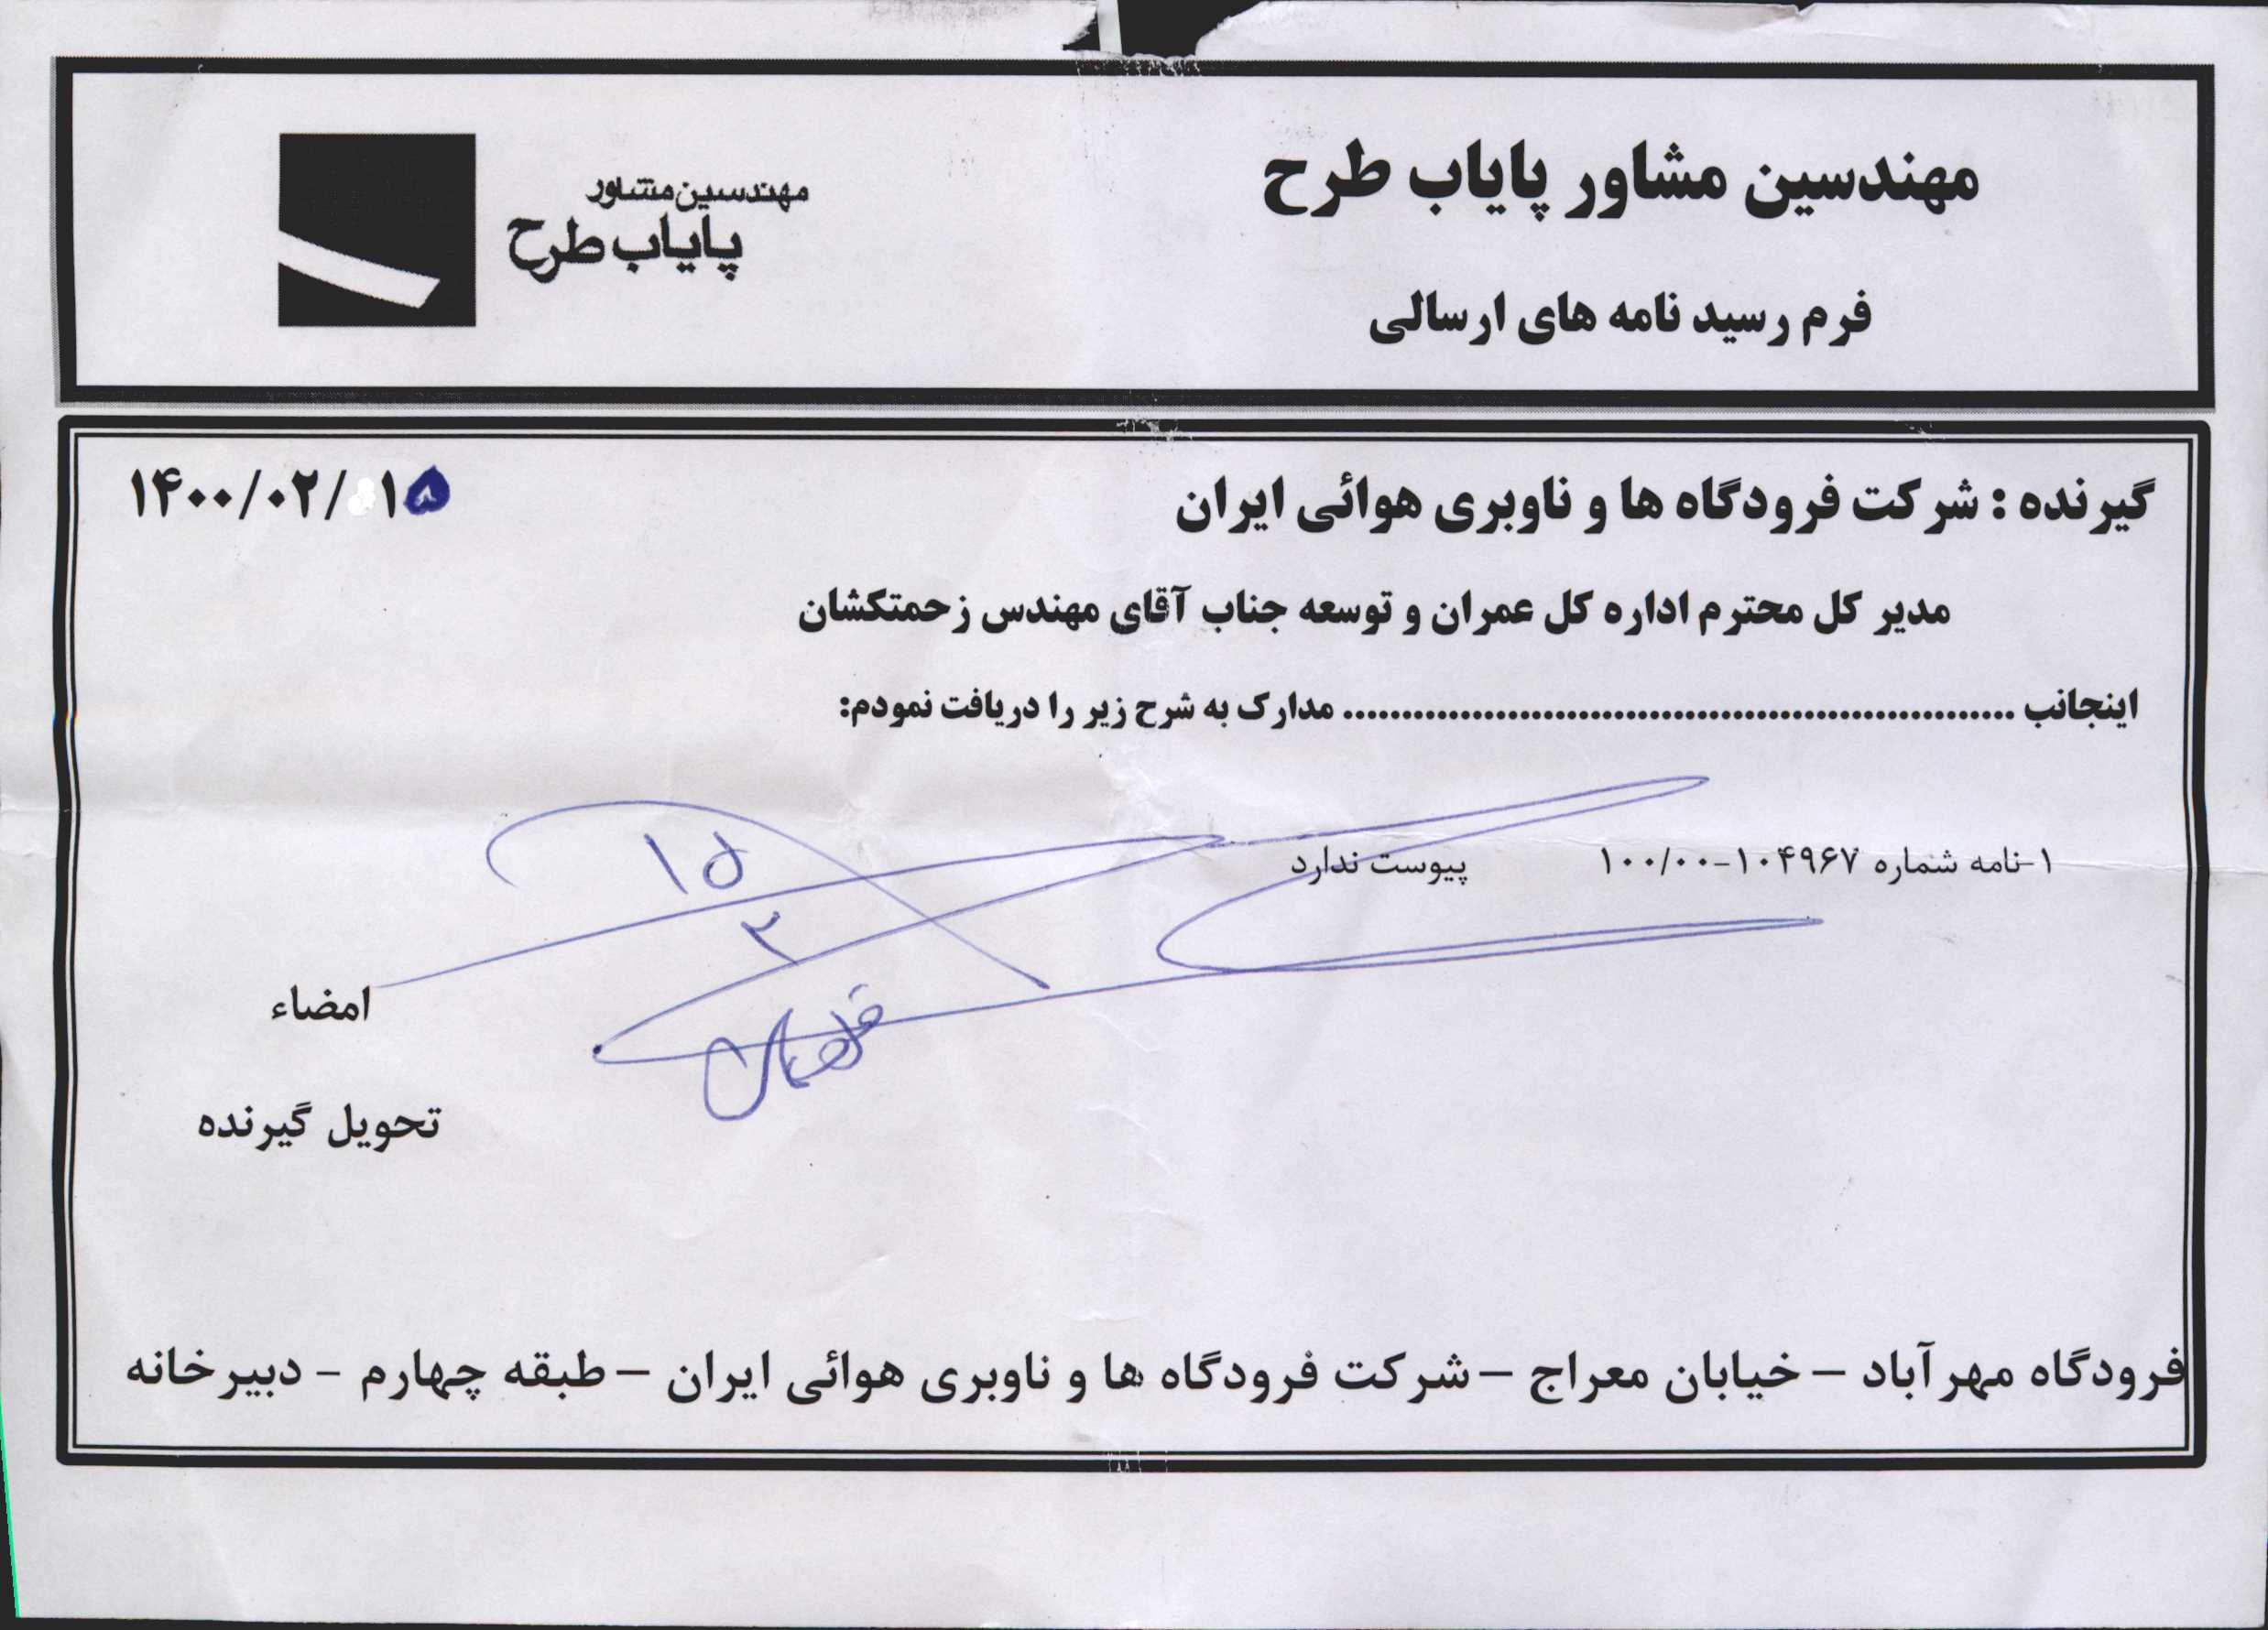 مهندسین مشاور پایاب طرح
فرم رسید نامه های ارسالی
مهندسین مشاور
پایاب طرح
گیرنده : شرکت فرودگاه ها و ناوبری هوائی ایران
۱۴۰۰/۰۲/۱۵
مدیر کل محترم اداره کل عمران و توسعه جناب آقای مهندس زحمتکشان
اینجانب .......................................................... مدارک به شرح زیر را دریافت نمودم:
۱-نامه شماره ۱۰۴۹۶۷-۱۰۰/۰۰ پیوست ندارد
۱۵
۲
امضاء
تحویل گیرنده
فرودگاه مهرآباد – خیابان معراج – شرکت فرودگاه ها و ناوبری هوائی ایران – طبقه چهارم - دبیرخانه